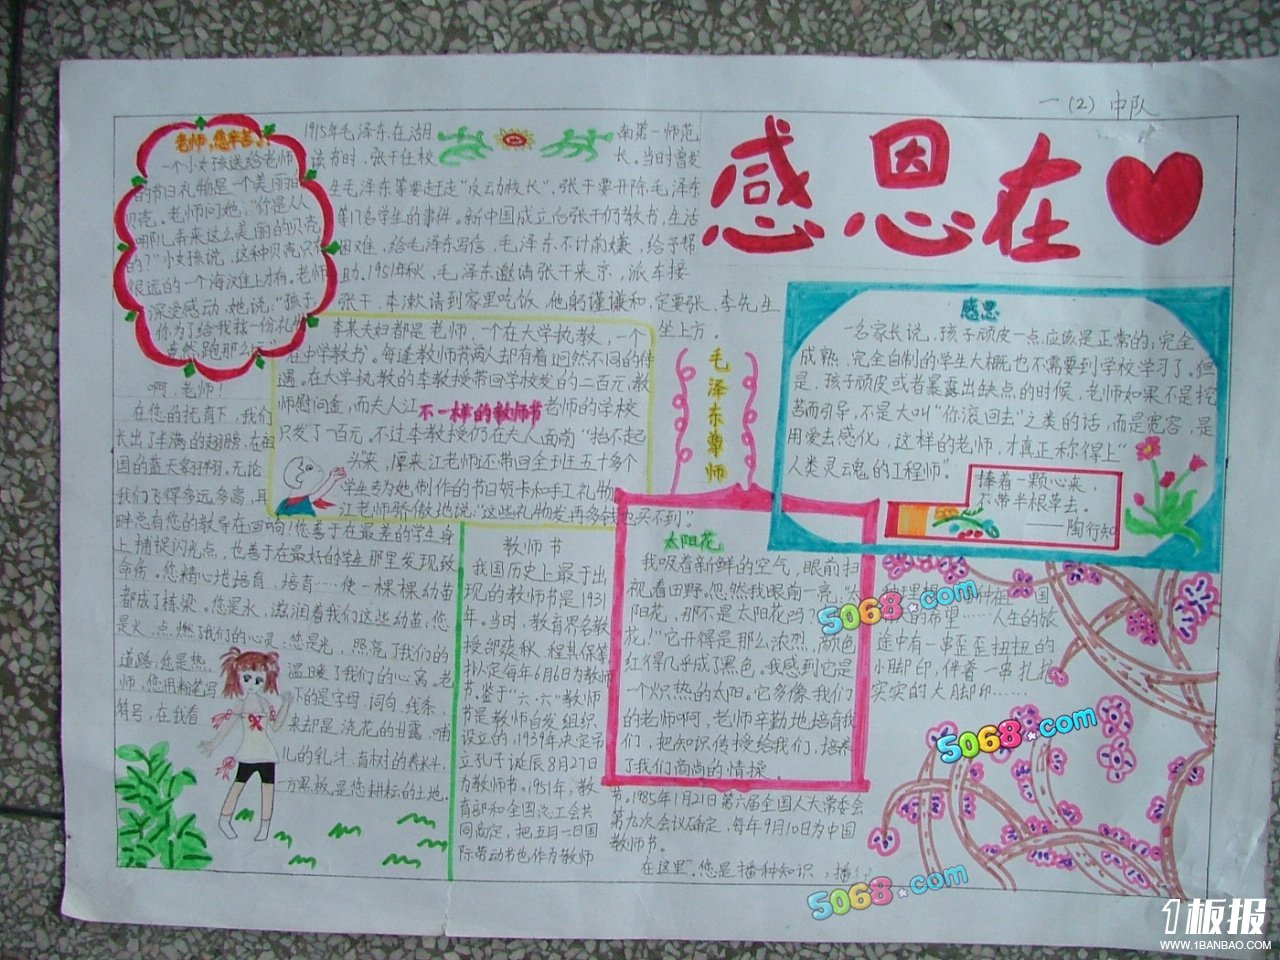 一(2)中队
感恩在
老师,您辛苦了!
一个小女孩送给老师
的节日礼物是一个美丽的
贝壳。老师问她:“你是从
哪儿弄来这么美丽的贝壳
的?”小女孩说,这种贝壳只有
很远的一个海滩上才有。老师
深受感动,她说:“孩子
你为了给我找一份礼物
竟然跑那么远”
1915年毛泽东在湖
南第一师范
读书时,张干任校
长。当时曾发
生毛泽东等要赶走“反动校长”,张干要开除毛泽东
等17名学生的事件。新中国成立后张干仍教书,生活
困难,给毛泽东写信,毛泽东不计前嫌,给予帮
助。1951年秋,毛泽东邀请张干来京,派车接
张干,李漱请到家里吃饭,他躬谨谦和,定要张、李先生
坐上方。
毛泽东尊师
李某夫妇都是老师,一个在大学执教,一个
在中学教书。每逢教师节两人却有着迥然不同的待
遇。在大学执教的李教授带回学校发的二百元教
师慰问金,而夫人江
不一样的教师节
老师的学校
只发了一百元。不过李教授仍在夫人面前“抬不起
头来,原来江老师还带回全班五十多个
学生专为她制作的节日贺卡和手工礼物
江老师骄傲地说:“这些礼物发再多钱也买不到”。
感恩
一名家长说,孩子顽皮一点应该是正常的,完全
成熟、完全自制的学生大概也不需要到学校学习了。但
是,孩子顽皮或者暴露出缺点的时候,老师如果不是挖
苦而引导,不是大叫“你滚回去”之类的话,而是宽容,是
用爱去感化,这样的老师,才真正称得上“
人类灵魂的工程师”。
捧着一颗心来,
不带半根草去。
——陶行知
啊,老师!
在您的托育下,我们
长出了丰满的翅膀,在祖
国的蓝天翱翔,无论
我们飞得多远多高,耳
畔总有您的教导在回响!您善于在最差的学生身
上捕捉闪光点,也善于在最好的学生那里发现致
命伤。您精心地培育,培育……使一棵棵幼苗
都成了栋梁。您是水,滋润着我们这些幼苗;您
是火,点燃了我们的心灵;您是光,照亮了我们的
道路;您是热,
温暖了我们的心窝。老
师,您用粉笔写
下的是字母、词句、线条、
符号,在我看
来却是浇花的甘露,哺
儿的乳汁,育树的养料,
一方黑板是您耕耘的土地。
教师节
我国历史上最于出
现的教师节是1931
年。当时,教育界名教
授邰爽秋、程其保等
拟定每年6月6日为教师
节。鉴于“六·六”教师
节是教师自发组织
设立的,1939年决定另
立孔子诞辰8月27日
为教师节。1951年,教
育部和全国总工会共
同商定,把五月一日国
际劳动节也作为教师
节。1985年1月21日第六届全国人大常委会
第九次会议确定,每年9月10日为中国
教师节。
太阳花
我吸着新鲜的空气,眼前扫
视着田野。忽然我眼前一亮,太
阳花,那不是太阳花吗?
花!”它开得是那么浓烈,颜色
红得几乎成了黑色。我感到它是
一个炽热的太阳。它多像我们
的老师啊,老师辛勤地培育我
们,把知识传授给我们,培养
了我们高尚的情操。
在这里,您是播种知识、播
的希望……人生的旅
途中有一串歪歪扭扭的
小脚印,伴着一串扎扎
实实的大脚印……
5068.com
5068.com
5068.com
1板报
WWW.1BANBAO.COM